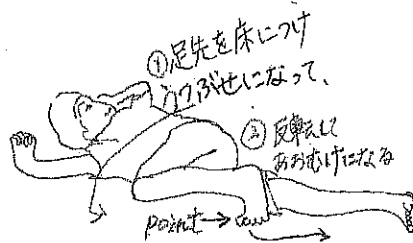 ①足先を床につけ
うつぶせになって、
② 反転して
あおむけになる
point→